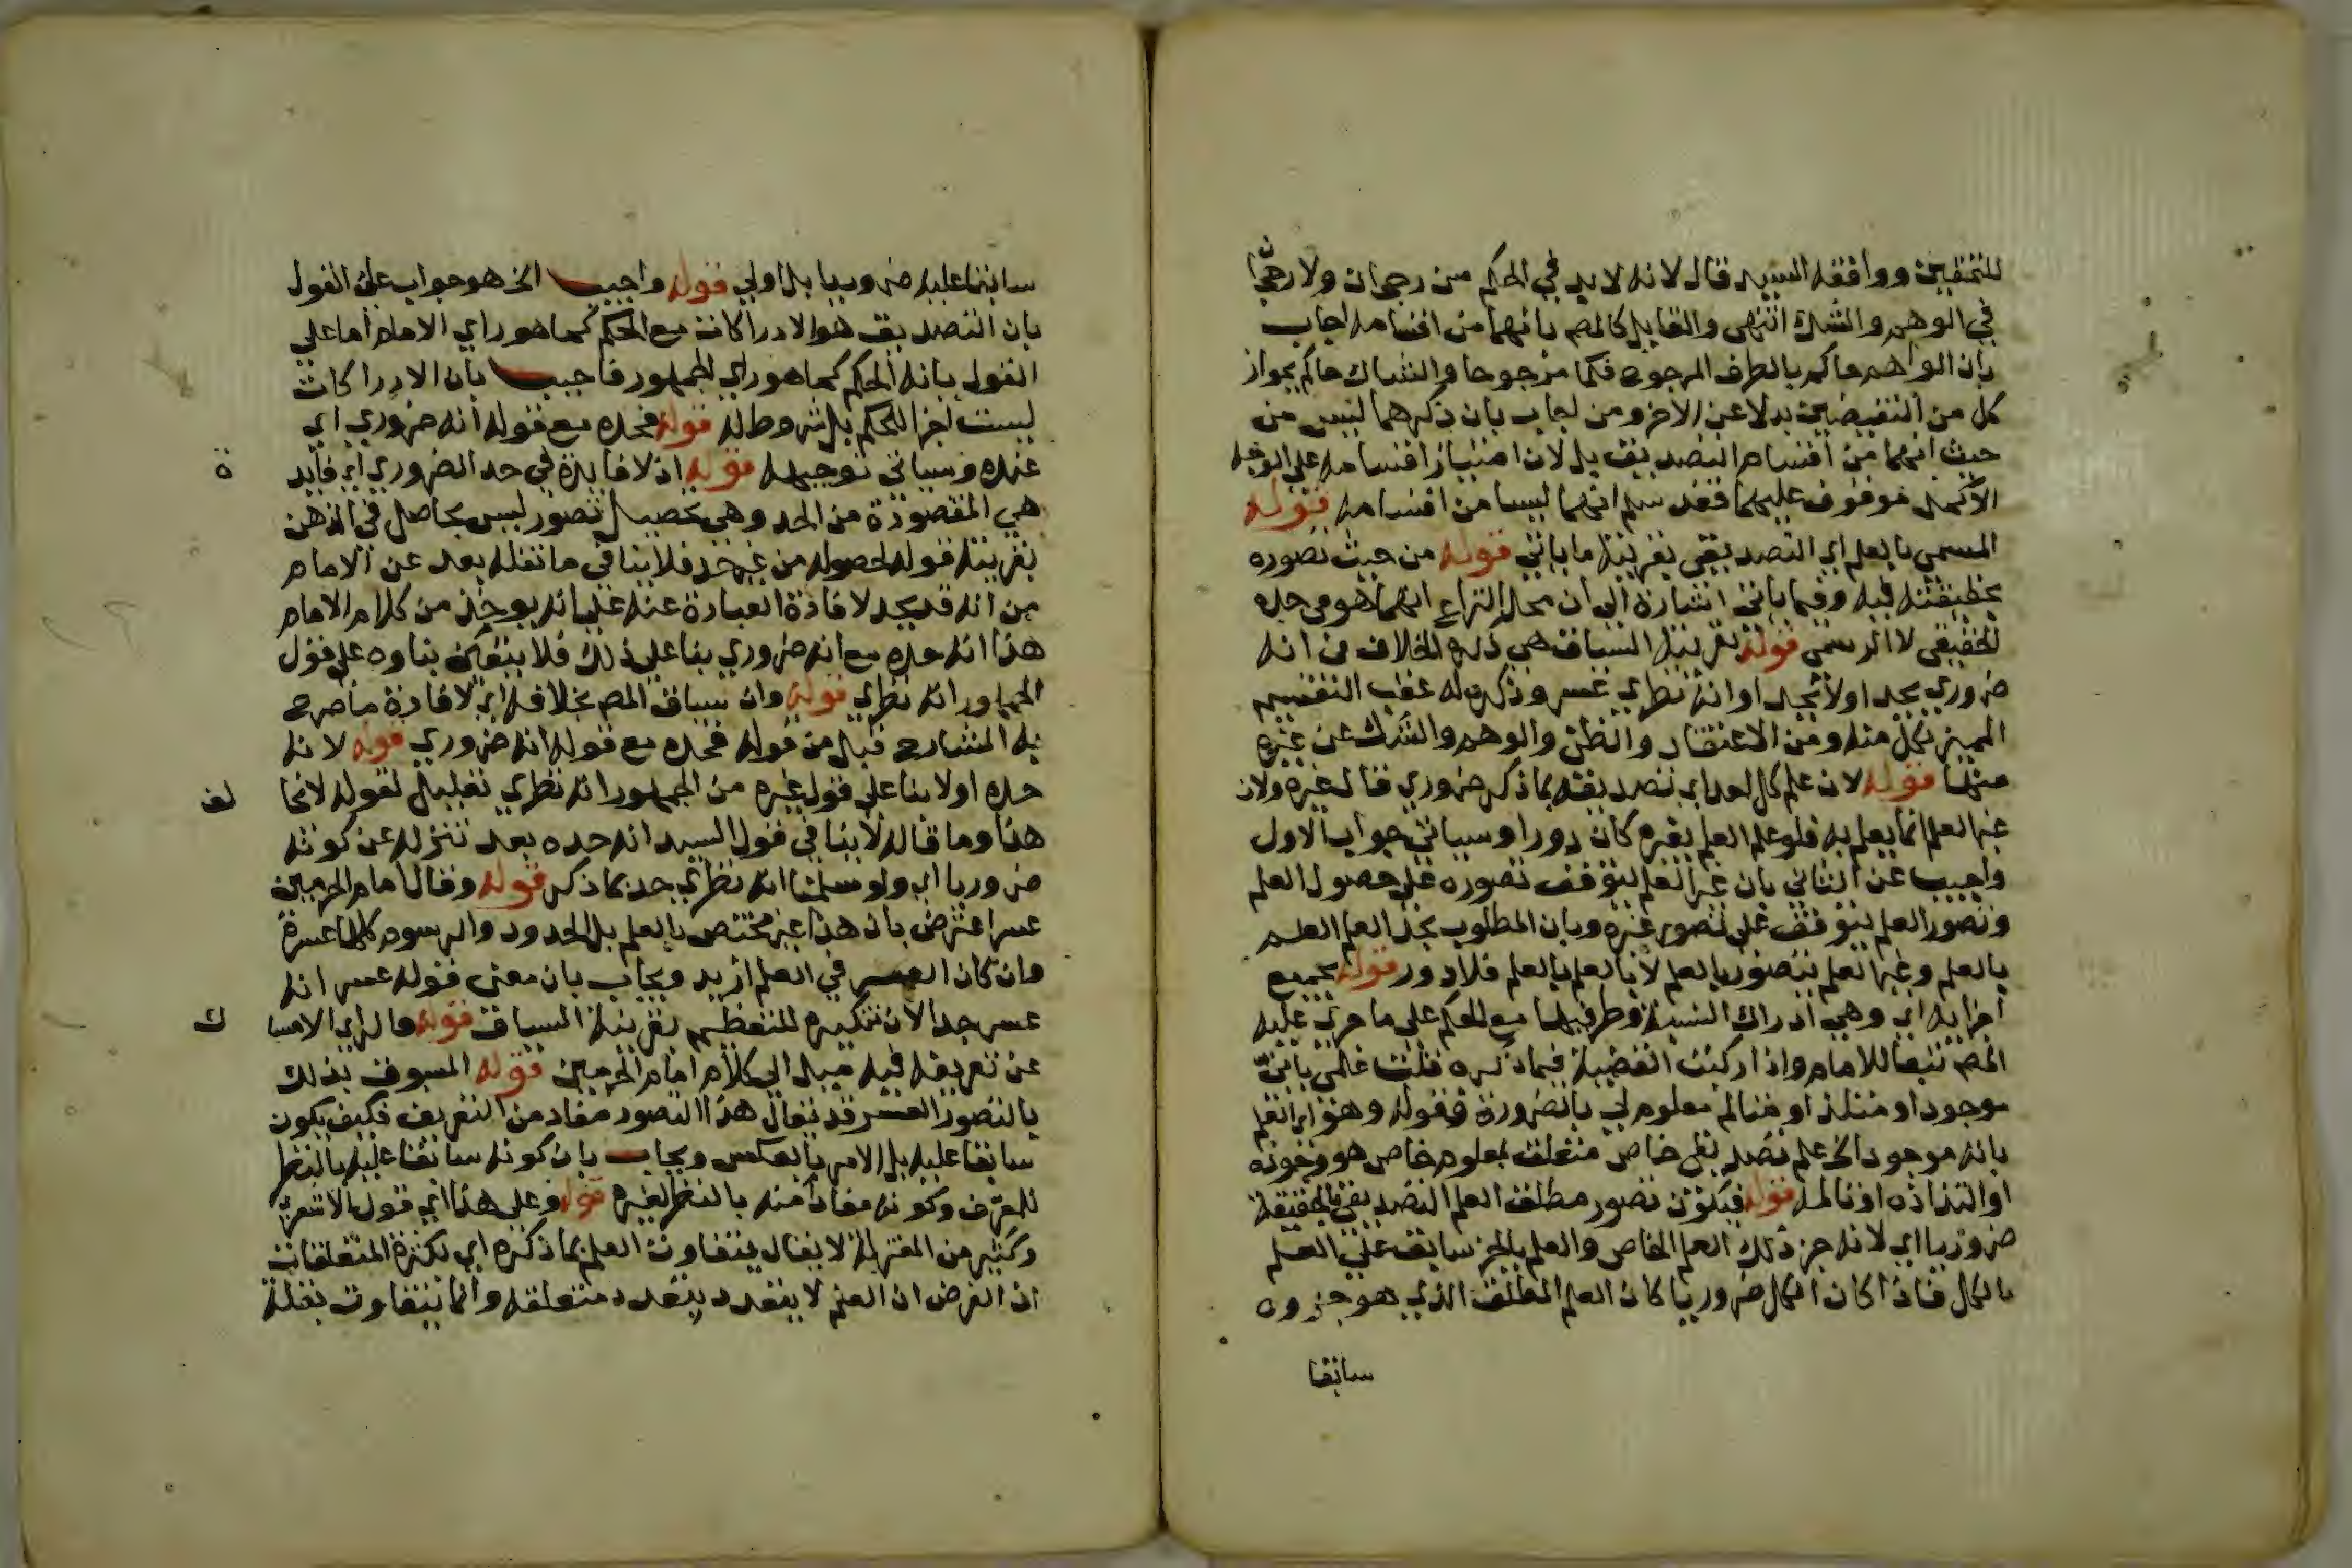 للمحققين ووافقه السيد قال لانه لا بد في الحكم من رجحان ولا رجحان
في الوهم والشك انتهى والقايل كالمص بانهما من اقسامه اجاب
بان الواهم حاكم بالطرف المرجوح حكما مرجوحا والشاك حاكم بجواز
كل من النقيضين بدلا عن الاخر ومن اجاب بان ذكرهما ليس من
حيث انهما من اقسام التصديق بل لان امتياز اقسامه على الوجه
الاكمل موقوف عليهما فقد سلم انهما ليسا من اقسامه قوله
المسمى بالعلم اي التصديقي بقرينة ما ياتي قوله من حيث تصوره
بحقيقته فيه وفيما ياتي اشارة الى ان محل النزاع انما هو في حده
الحقيقي لا الرسمي قوله بقرينة السياق هي ذكره الخلاف في انه
ضروري يحد او لا يحد او انه نظري عسر وذكره له عقب التقسيم
المميز لكل منه ومن الاعتقاد والظن والوهم والشك عن غيره
منها قوله لان علم كل احد اي تصديقه بما ذكر ضروري قال غيره ولان
غير العلم انما يعلم به فلو علم العلم بغيره كان دورا وسياتي جواب الاول
واجيب عن الثاني بان غير العلم يتوقف تصوره على حصول العلم
وتصور العلم يتوقف على تصور غيره وبان المطلوب بحد العلم العلم
بالعلم وغير العلم يتصور بالعلم لا بالعلم بالعلم فلا دور قوله بجميع
اجزايه اي وهي ادراك النسبة وطرفيها مع الحكم على ما جرى عليه
المص تبعا للامام واذا ركبت القضية فيما ذكره قلت علمي باني
موجود او ملتذ او متالم معلوم لي بالضرورة فقوله وهو اي العلم
بانه موجود الخ علم تصديقي خاص متعلق بمعلوم خاص هو وجوده
او التذاذه او تالمه قوله فيكون تصور مطلق العلم التصديقي بالحقيقة
ضروريا اي لانه جز ذلك العلم الخاص والعلم بالجز سابق على العلم
بالكل فاذا كان الكل ضروريا كان العلم المطلق الذي هو جزوه
سابقا
سابقا عليه ضروريا بل اولى قوله واجيب الخ هو جواب على القول
بان التصديق هو الادراكات مع الحكم كما هو راي الامام اما على
القول بانه الحكم كما هو راي الجمهور فاجيب بان الادراكات
ليست اجزا للحكم بل شروط له قوله فحده مع قوله انه ضروري اي
عنده وسياتي توجيهه قوله اذ لا فايدة في حد الضروري اي فايد
ة
هي المقصودة من الحد وهي تحصيل تصور ليس بحاصل في الذهن
بقرينة قوله لحصوله من غير حد فلا ينافي ما نقله بعد عن الامام
من انه قد يحد لافادة العبارة عنه على انه يوخذ من كلام الامام
هذا انه حده مع انه ضروري بنا على ذلك فلا يتعين بناوه على قول
الجمهور انه نظري قوله وان سياق المص بخلافه اي لافادة ما صرح
به الشارح قبل من قوله فحده مع قوله انه ضروري قوله لانه
حده اولا بنا على قول غيره من الجمهور انه نظري تعليل لقوله لا نخا
لف
هذا وما قاله لا ينافي قول السيد انه حده بعد تنزله عن كونه
ضروريا اي ولو سلمنا انه نظري حد بما ذكر قوله وقال امام الحرمين
عسر اعترض بان هذا غير مختص بالعلم بل الحدود والرسوم كلها عسرة
وان كان العسر في العلم ازيد ويجاب بان معنى قوله عسر انه
عسر جدا لان تنكيره للتعظيم بقرينة السياق قوله فالراي الامسا
ك
عن تعريفه فيه ميل الى كلام امام الحرمين قوله المسبوق بذلك
بالتصور العسر قد يقال هذا التصور مفاد من التعريف فكيف يكون
سابقا عليه بل الامر بالعكس ويجاب بان كونه سابقا عليه بالنظر
للمعرف وكونه مفادا منه بالنظر لغيره قوله وعلى هذا اي قول الاشعري
وكثير من المعتزلة لا يقال يتفاوت العلم بما ذكره اي بكثرة المتعلقات
اذ الفرض ان العلم لا يتعدد بتعدد متعلقه وانما يتفاوت بقلة